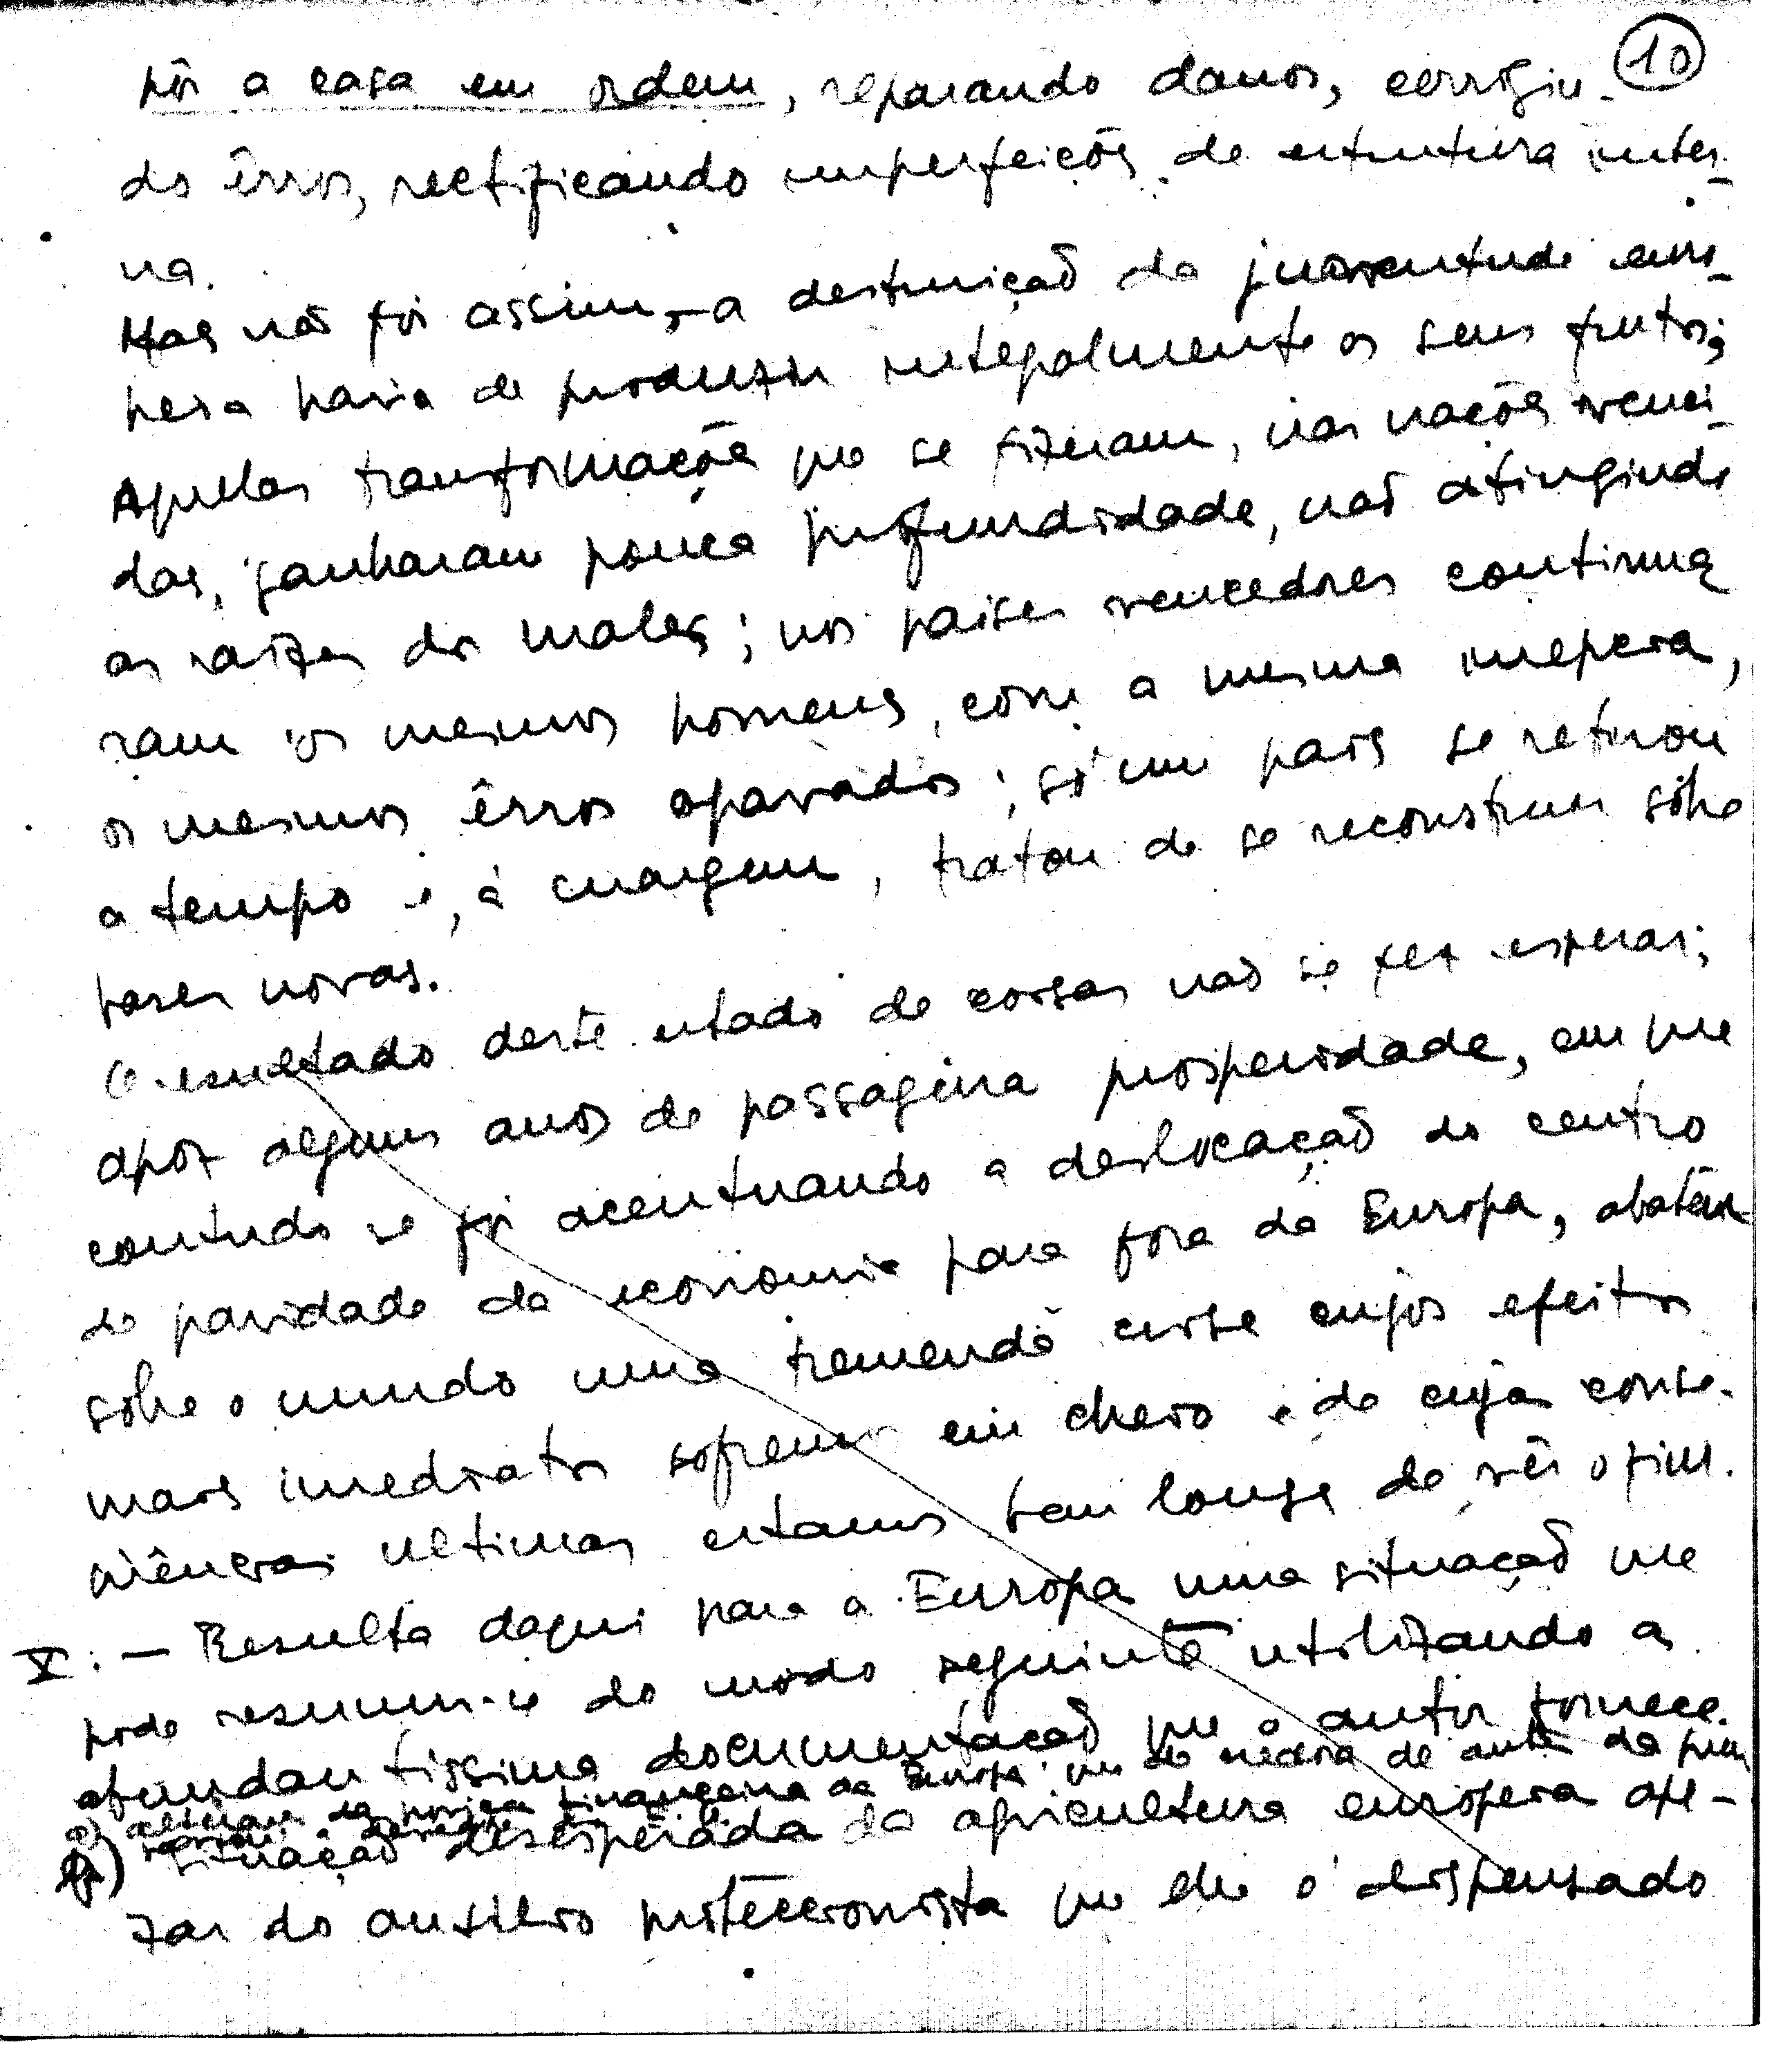 10
pôr a casa em ordem, reparando danos, corrigin-
do êrros, rectificando imperfeições de estrutura inter-
na.
Mas não foi assim, - a destruição da juventude euro-
peia havia de produzir integralmente os seus frutos;
Aquelas transformações que se fizeram, nas nações venci-
das, ganharam pouca profundidade, não atingindo
as raízes dos males; nos países vencedores continua
ram os mesmos homens, com a mesma
os mesmos êrros agravados; só um país se retirou
a tempo e, à margem, tratou de se reconstruir sôbre
bases novas.
O resultado deste estado de coisas não se fez esperar;
após alguns anos de passageira prosperidade, em que
contudo se foi acentuando a deslocação do centro
de gravidade da economia para fora da Europa, abateu
sôbre o mundo uma tremenda crise cujos efeitos
mais imediatos sofremos em cheio e de cujas conse-
quências ultimas estamos bem longe de vêr o fim.
V. — Resulta daqui para a Europa uma situação que
pode resumir-se do modo seguinte utilizando a
abundantissima documentação que o autor fornece.
a) da posição financeira da Europa de antes da
b) situação desesperada da agricultura europeia ape-
zar do auxilio proteccionista que lhe é dispensado